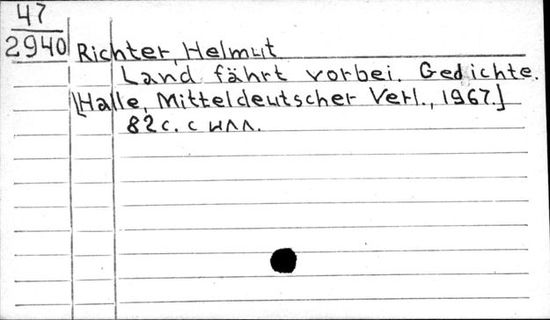 47
2940
Richter, Helmut
Land fährt vorbei. Gedichte.
[Halle, Mitteldeutscher Verl., 1967.]
82 с. с илл.